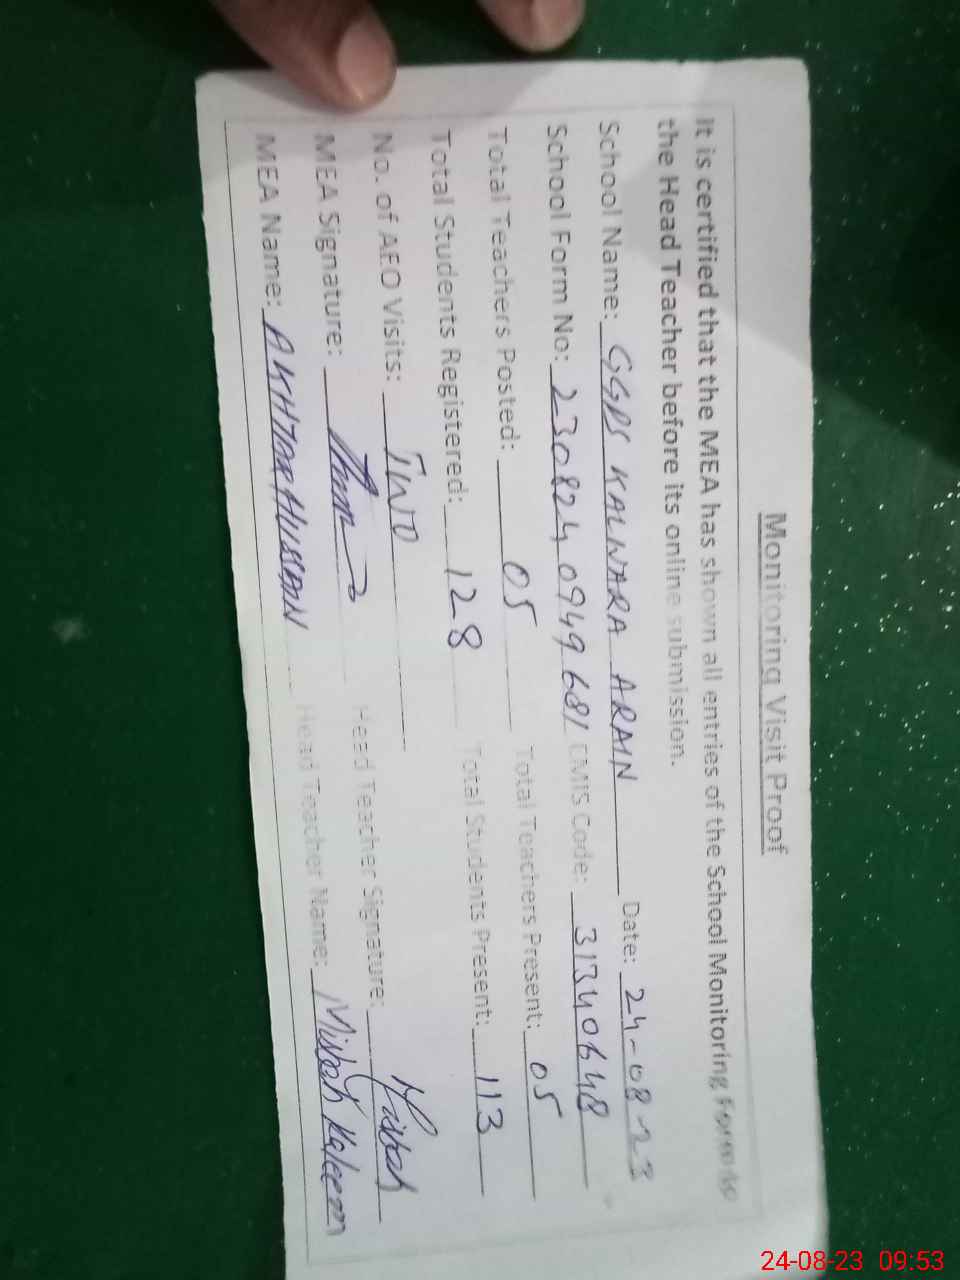 Monitoring Visit Proof
It is certified that the MEA has shown all entries of the School Monitoring Form to
the Head Teacher before its online submission.
School Name: GGPS KALWARA ARAIN Date: 24-08-23
School Form No: 2308240949681 EMIS Code: 31340648
Total Teachers Posted: 05 Total Teachers Present: 05
Total Students Registered: 128 Total Students Present: 113
No. of AEO Visits: TWO
MEA Signature: Head Teacher Signature: Misbah
MEA Name: AKHTAR HUSSAIN Head Teacher Name: Misbah Kaleem
24-08-23 09:53